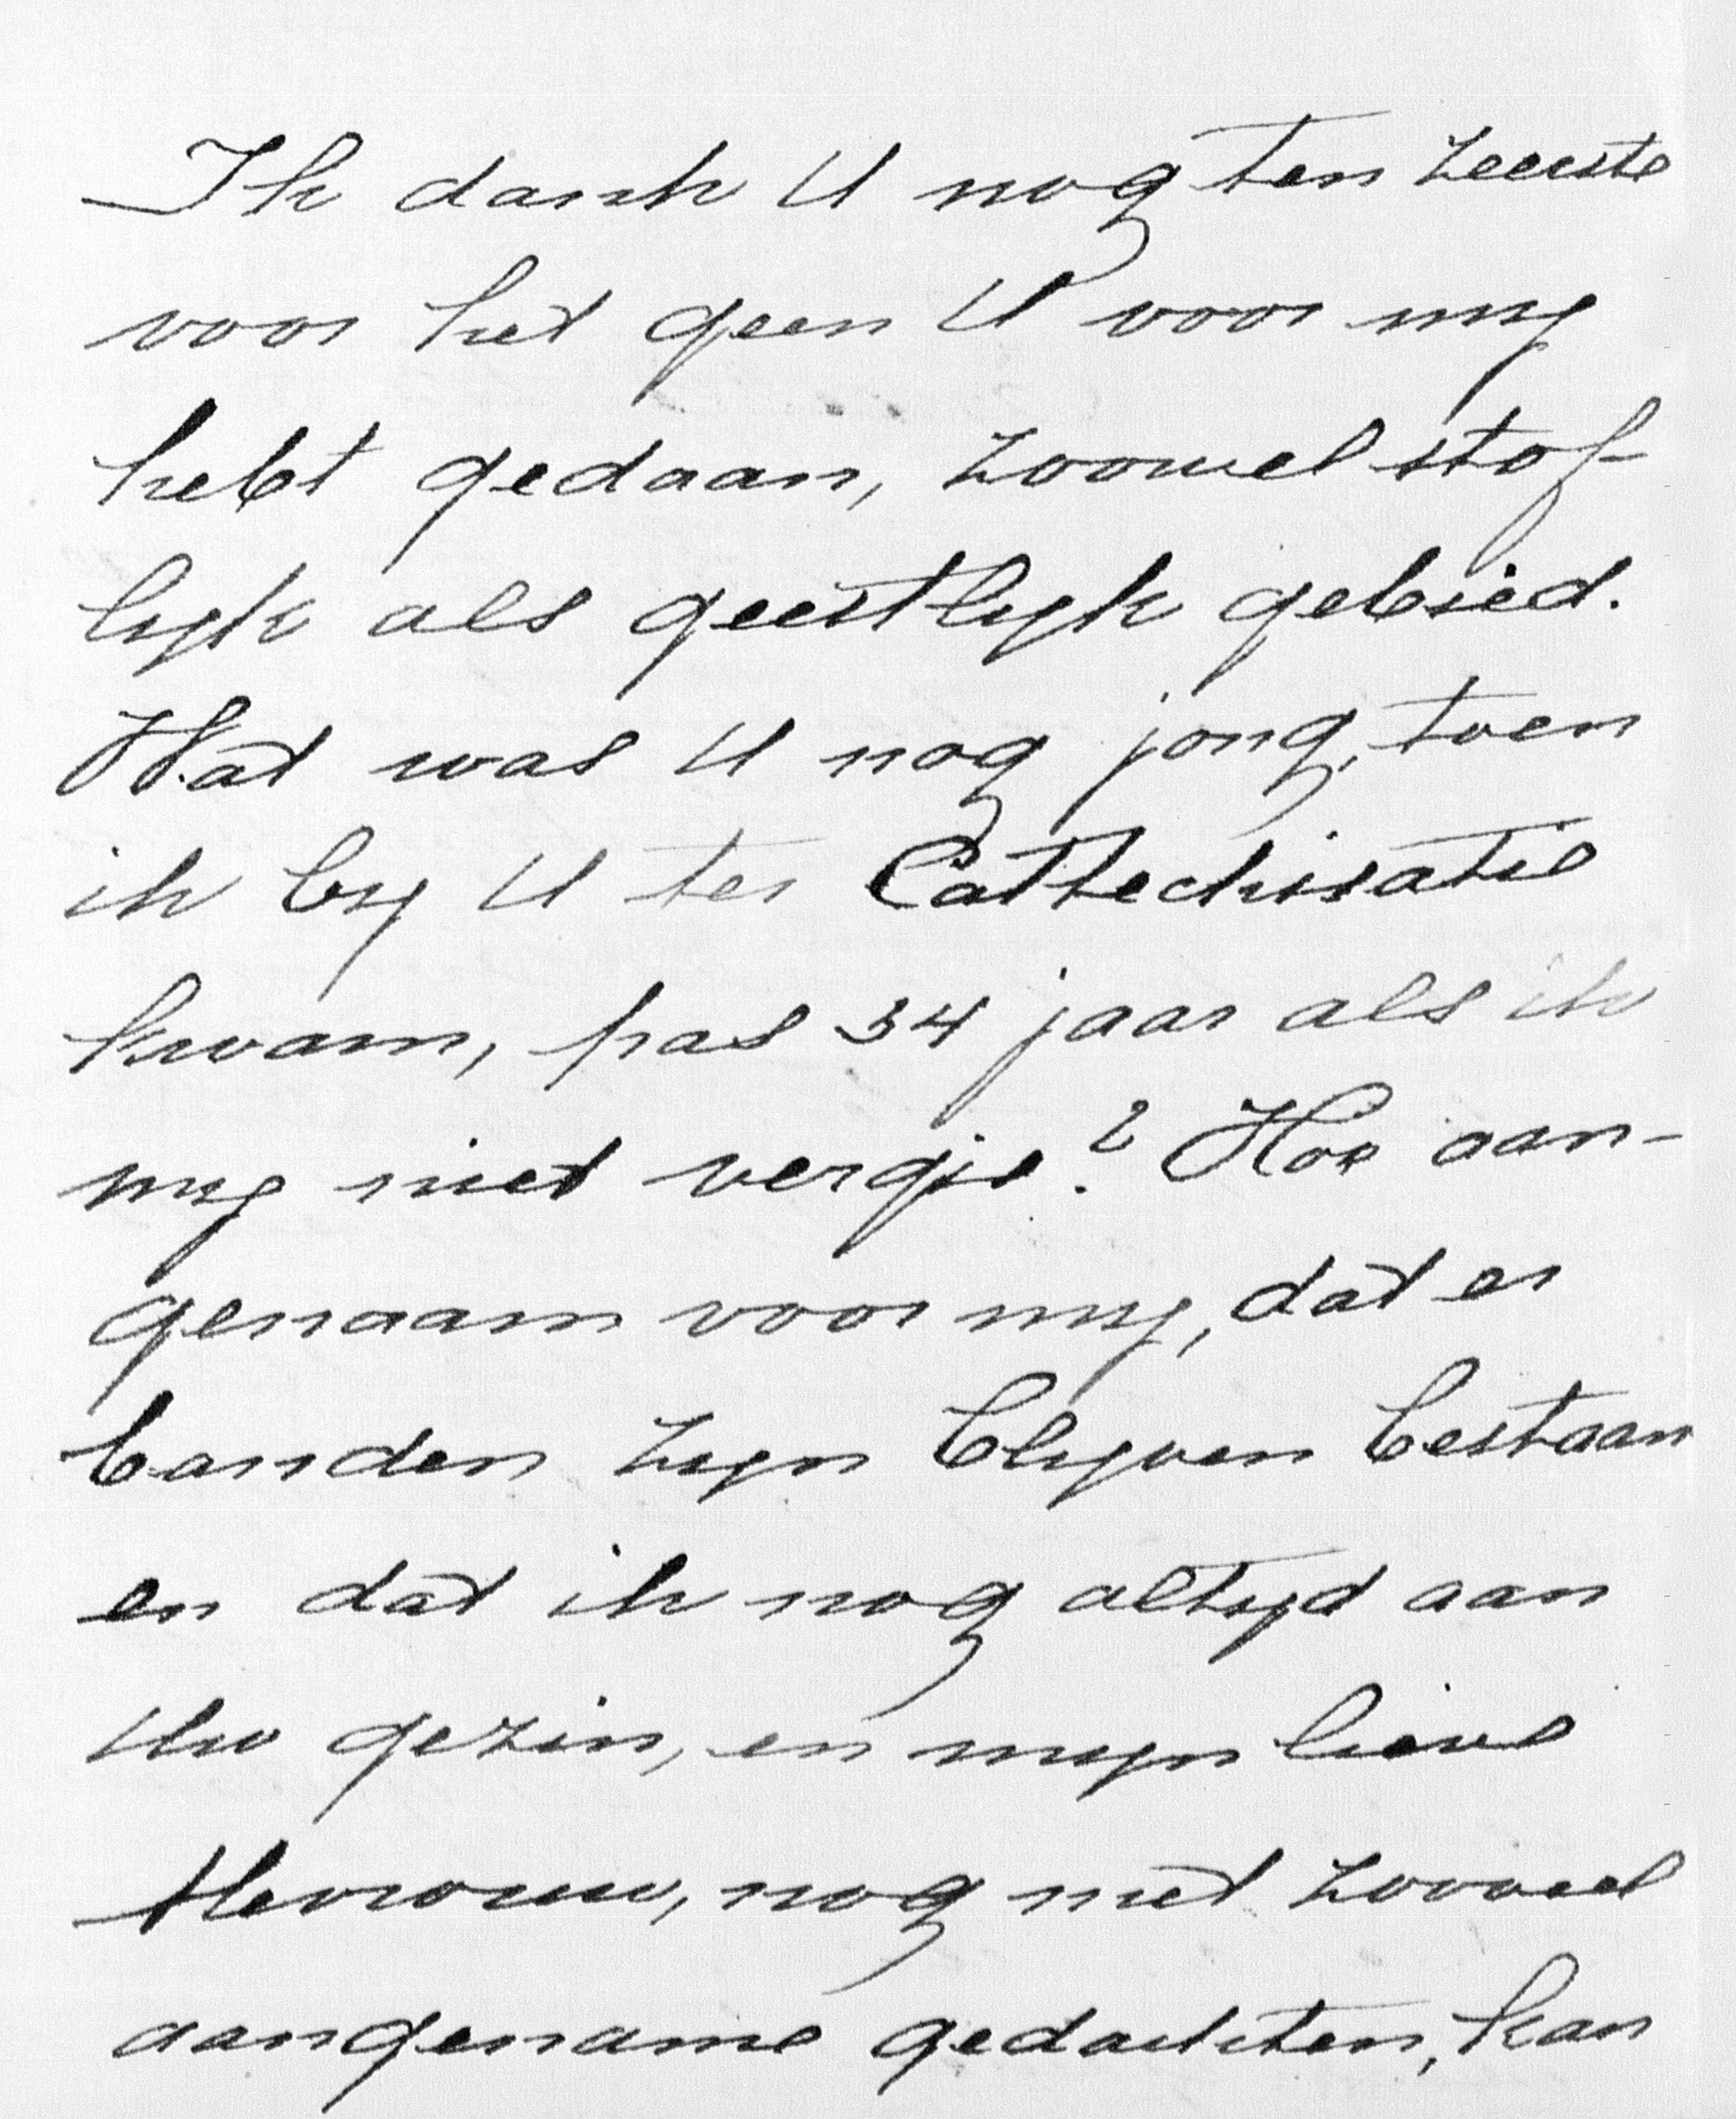 Ik dank U nog ten zeerste
voor het geen U voor my
hebt gedaan, zoowel stof-
lyk als geestlyk gebied.
Wat was U nog jong, toen
ik by U ter Cattechisatie
kwam, pas 34 jaar als ik
my niet vergis? Hoe aan-
genaam voor my, dat er
banden zyn blyven bestaan
en dat ik nog altyd aan
Uw gezin, en myn lieve
Mevrouw, nog met zooveel
aangename gedachten, kan